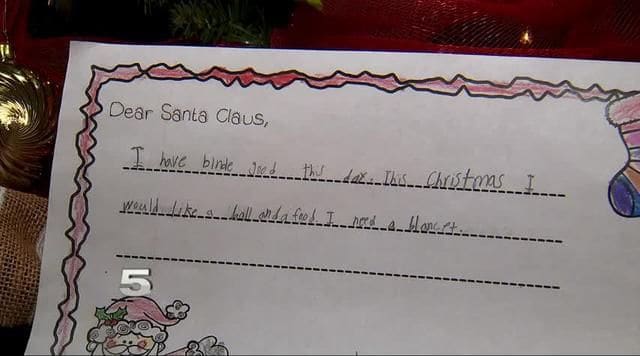 Dear Santa Claus,
I have binde good this day. This Christmas I
would like a ball and a food I need a blancet.
5